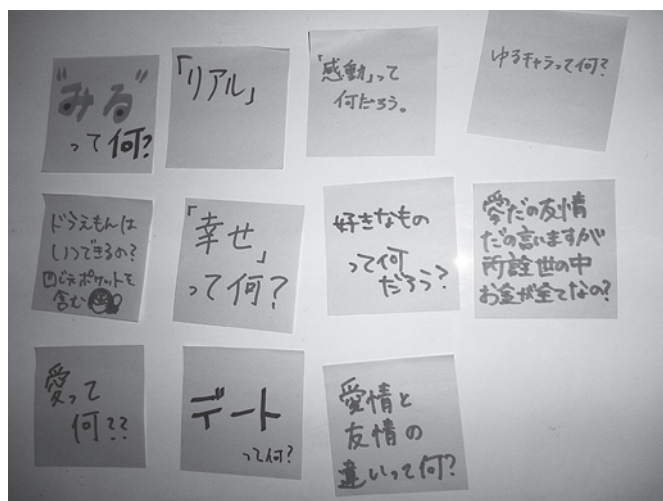 "みる"
って何?
「リアル」
「感動」って
何だろう。
ゆるキャラって何?
ドラえもんは
いつできるの?
四じげんポケットを
含む
「幸せ」
って何?
好きなもの
って何
だろう?
愛だの友情
だの言いますが
所詮世の中
お金が全てなの?
愛って
何??
デート
って何?
愛情と
友情の
違いって何?